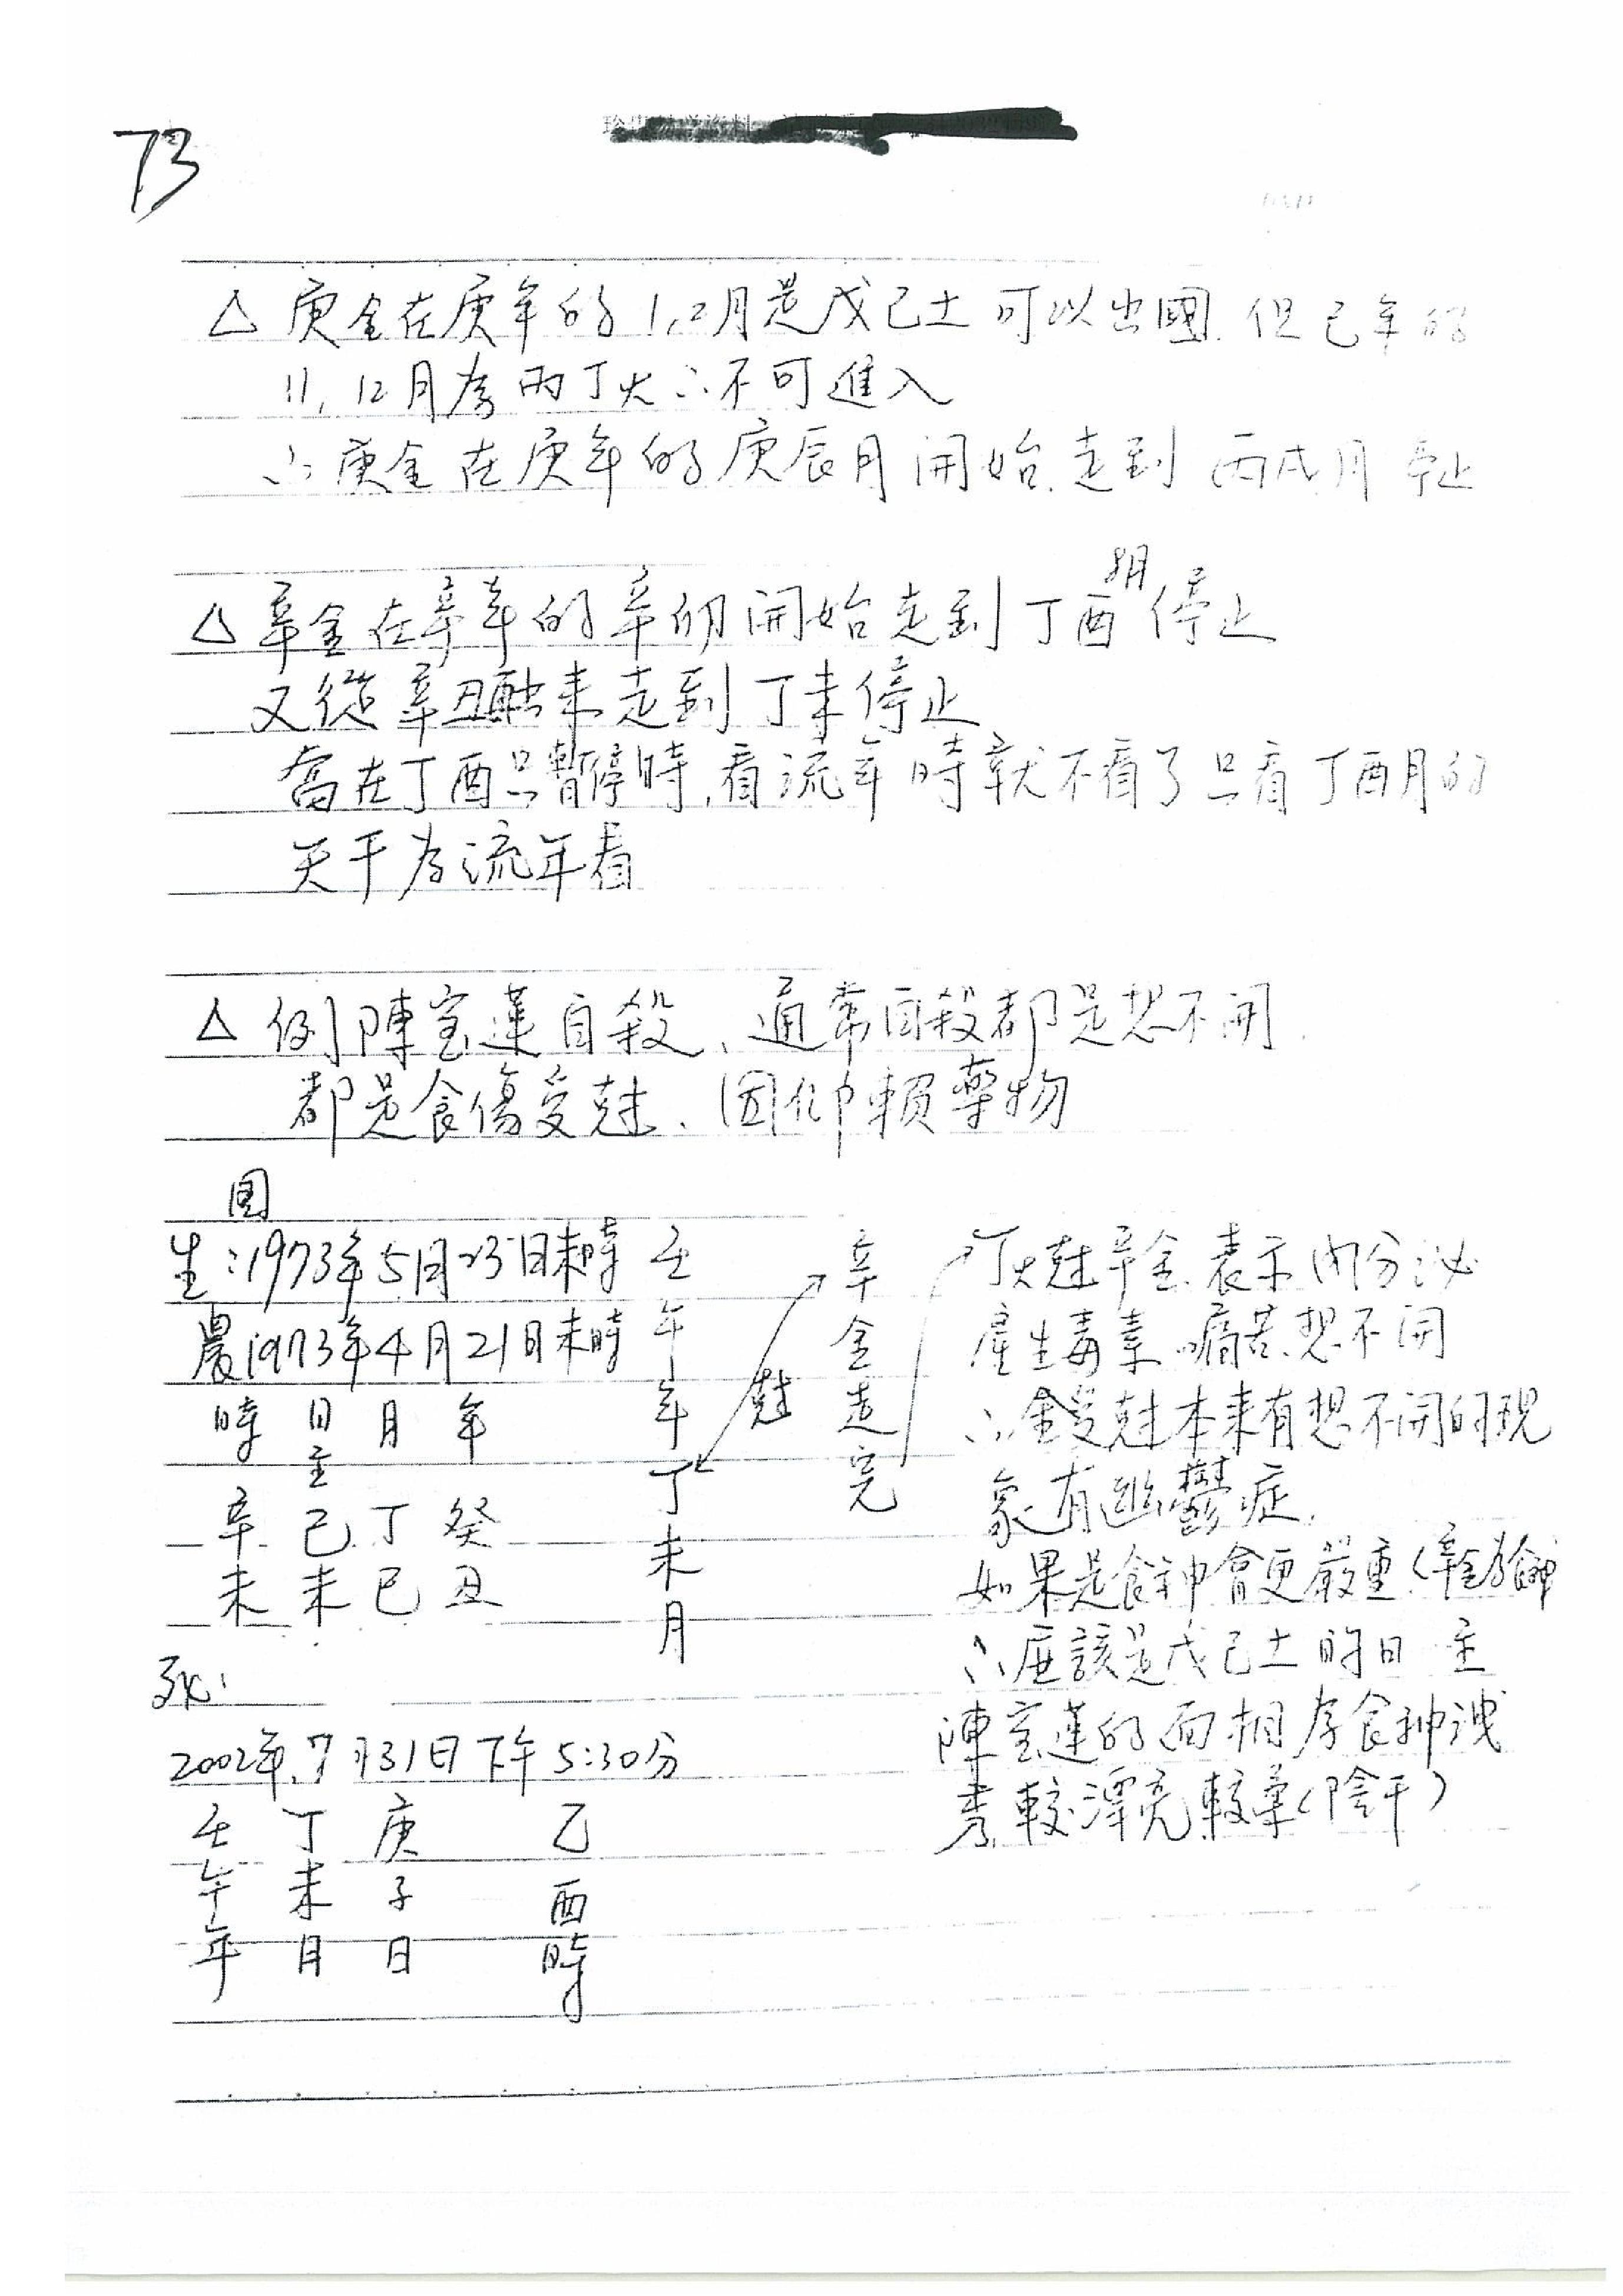 73
△ 庚金在庚年的1,2月是戊己土可以出國.但己年的
11,12月為丙丁火∴不可進入
∴庚金在庚年的庚辰月開始.走到丙戌月停止
8月
△ 辛金在辛年的辛卯開始走到丁酉停止
又從辛丑 來走到丁未停止
當在丁酉只暫停時,看流年時就不看了只看丁酉月的
天干為流年看
△ 例陳宝蓮自殺、通常自殺都是想不開.
都是食傷受尅、因仰賴藥物
國
生:1973年5月23日未時
農1973年4月21日未時
時 日主 月 年
辛 己 丁 癸
未 未 巳 丑
死:
2002年7月31日下午5:30分
壬 丁 庚 乙
午 未 子 酉
年 月 日 時
壬午年丁未月
尅
辛金走完
丁火尅辛金.表示內分泌
產生毒素.痛苦.想不開
∴金受尅本來有想不開的現
象.有幽鬱症.
如果是食神會更嚴重(辛金為食神
∴應該是戊己土的日主
陳宝蓮的面相為食神洩
秀,較漂亮,較柔(陰干)